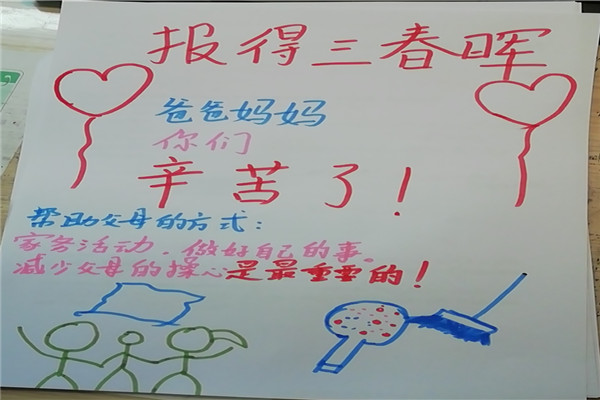 报得三春晖
爸爸妈妈
你们
辛苦了！
帮助父母的方式：
家务活动、做好自己的事。
减少父母的操心是最重要的！